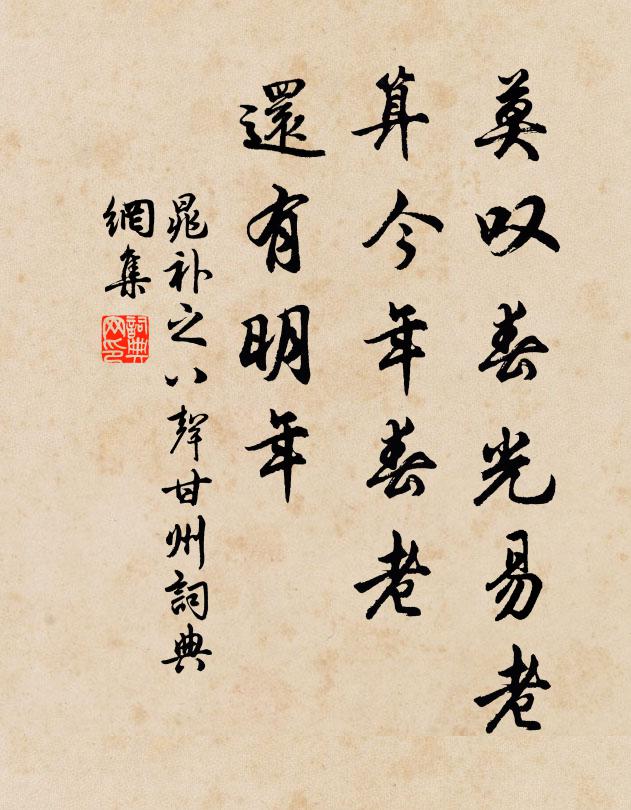 莫叹春光易老
算今年春老
還有明年
晁补之八聲甘州詞典
網集
詞典
网印